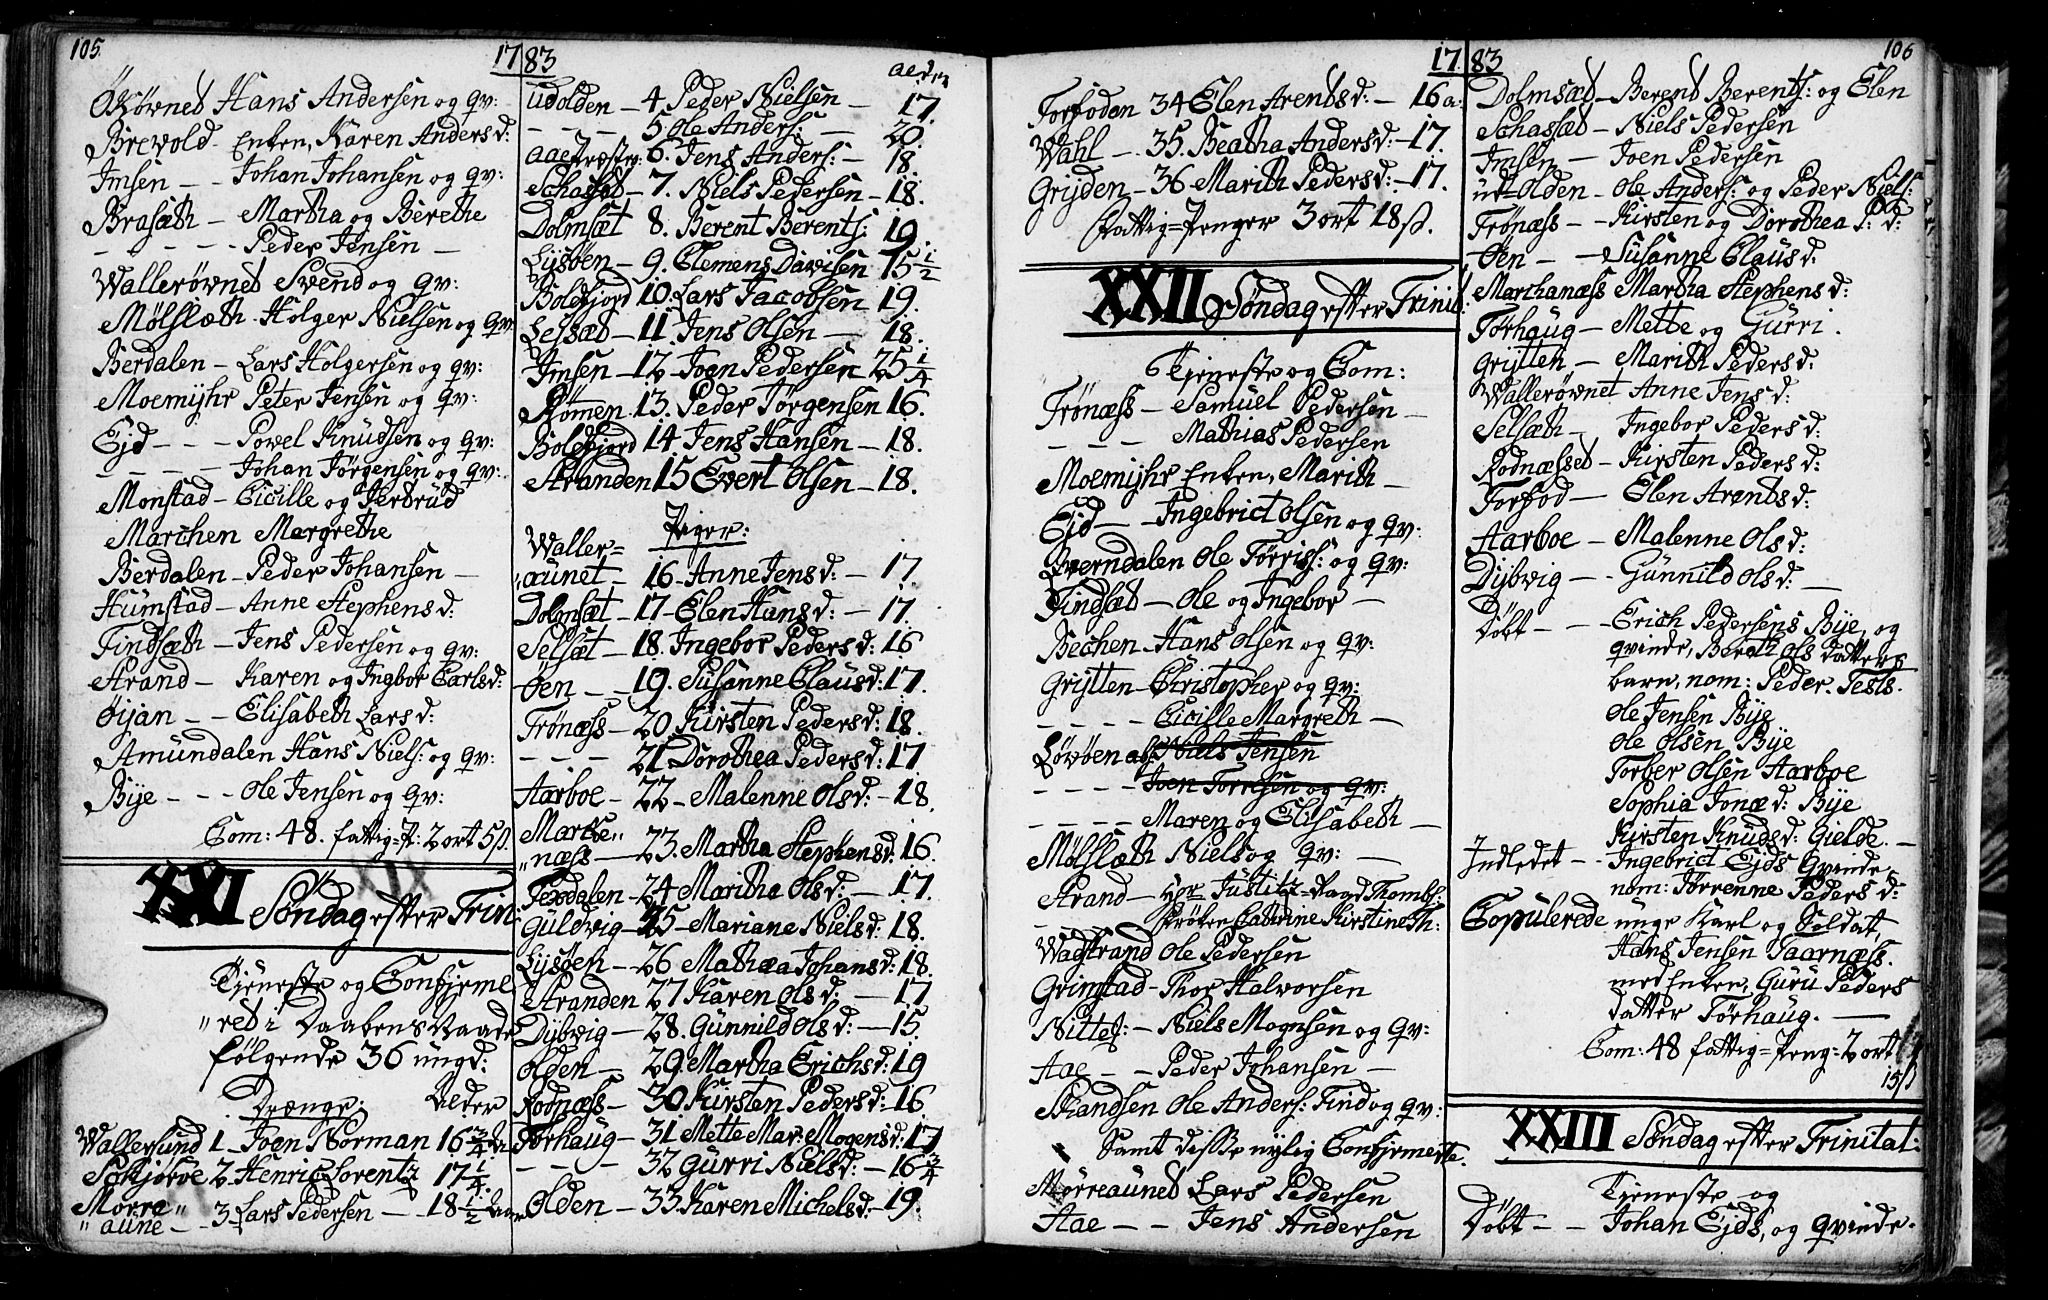 105.
1783
Økøvned Hans Andersen og qv:
Brevold- Enken, Karen Andersd:
Imsen - - Johan Johansen og qv:
Brasæth - Martha og Berethe
- - - - Peder Jensen -
Wallerøvned Svend og qv:
Mølslæth- Holger Nielsen og qv:
Berdalen - Lars Holgersen og qv:
Moemyhr Peter Jensen og qv:
Ejd - - - Povel Knudsen og qv:
- - - - Johan Jørgensen og qv:
Monstad - Cicille og Jerbrud
Marchen Margrethe
Berdalen - Peder Johansen -
Humstad - Anne Stephensd:
Tindsæth - Jens Pedersen og qv:
Strand - Karen og Ingbor Carlsd:
Øijan - - Elisabeth Larsd:
Amundalen Hans Niels: og qv:
Bije - - - Ole Jensen og qv:
Com: 48. fattig=P: 2 ort 5ß.
XXI Søndag efter Trin:
Tjeneste og Confirme
"red i Daabens Naade
følgende 36 ungd:
Drænge: Alder
Wallersund 1 - Joen Norman 16 3/4
Sækjøvoe 2. Henric Lorentz 17 1/4.
Morra"
"aune - 3 Lars Pedersen - - 18 1/2
alder
Udolden - 4. Peder Nielsen - 17.
- - - 5. Ole Anders: - 20.
6. Jens Anders: - 18.
Schassæd - 7. Niels Pedersen - 18.
Dolmsæt 8. Berent Berents: 19.
Lysøen - 9. Clemens Davisen 15 1/2
Boldfjord 10. Lars Jacobsen 19.
Lejsæd - 11. Jens Olsen - 18.
Imsen - 12 - Joen Pedersen 25 1/4
Rømmen 13. Peder Jørgensen 16.
Boldfjord 14 Jens Hansen - 18.
Stranden 15 Evert Olsen - 18.
Piger:
Waller=
"aunet - 16 - Anne Jensd: - 17.
Dolmsæt - 17 - Elen Hansd: - 17.
Selsæt - 18. Ingebor Pedersd: 16
Øen - - 19. Susanne Clausd: 17.
Trønæss - 20. Kirsten Pedersd: 18.
- - - - 21. Dorothea Pedersd: 17
Aarboe - 22 - Malenne Olsd: - 18.
Marke"
"næss - 23. Martha Stephensd: 16.
Texdalen - 24 Maritha Olsd: - 17.
Guldvig - 25 - Mariane Nielsd: 18.
Lysøen - 26 Mathæa Johansd: 18.
Stranden 27 Karen Olsd: - 17
Dybvig - 28. Gunnild Olsd: - 15.
Olden - - 29. Martha Erichsd: 19
Rodnæss - 30 Kirsten Pedersd: 16
Torhaug - 31 Mette Mar: Mogensd: 17
- - - - 32 Gurri Nielsd: - 16 3/4
Olden - 33. Karen Michelsd: - 19.
106
1783
Torfoden 34 Elen Arentsd: - 16 a:
Wahl - 35. Beatha Andersd: - 17.
Gryden - 36 - Marith Pedersd: - 17.
Fattig=Penger 3 ort 18ß.
XXII Søndag efter Trinit:
Tjeneste og Com:
Trønæss - Samuel Pedersen -
- - - Mathias Pedersen
Moemyhr Enken, Marith -
Ejd - - Ingebrict Olsen og qv:
Qverndalen Ole Tørris: og qv:
Tindsæd - Ole og Ingebor -
Bechen - Hans Olsen og qv:
Grytten - Christopher og qv:
- - - - Cicille Margreth -
Løvøen Niels Jensen
- - - - Joen Torresen og qv:
- - - - Maren og Elisabeth -
Mølslæth Niels og qv: -
Strand - Hør Justitz=Raad Thombs:
- - - Frøken Cathrine Kirstine Th:
Wagstrand Ole Pedersen
Grimstad - Thor Halvorsen
Nittes: - Niels Mognsen og qv:
Aae - - Peder Johansen -
Skandsen Ole Anders: Tind og qv:
Samt disse nylig Confirmerte.
Mørreauned Lars Pedersen
Aae - - Jens Andersen
Dolmsæd - Berend Berents: og Elen
Schassæd - Niels Pedersen
Imsen - Joen Pedersen
ud=Olden - Ole Anders: og Peder Niels:
Trønæss - Kirsten og Dorothea P: d:
Øen - - Susanne Clausd.
Marchanæss Martha Stephensd:
Torhaug - Mette og Gurri.
Grytten - Marith Pedersd:
Wallerøvnet Anne Jensd:
Selsæth - Ingebor Pedersd:
Rodnæsset - Kirsten Pedersd:
Torfod - Elen Arentsd:
Aarboe - Malenne Olsd:
Dybvig - - Gunnild Olsd: -
Døbt - - Erich Pedersens Bye, og
qvinde, Bereth Ols datters
barn, nom: Peder. Tests.
Ole Jensen Bye
Ole Olsen Bye
Torber Olsen Aarboe
Sophia Jonæd: Bye
Kirsten Knudsd: Gielde. -
Indledet - Ingebrict Ejds Qvinde,
nom: Tørrenne Pedersd:
Copulerede unge Karl og Soldat,
Hans Jensen Taarnæss.
med Enken, Guru Peders
datter Torhaug. -
Com: 48 fattig=Peng: 2 ort
15ß
XXIII Søndag efter Trinitat:
Tjeneste og
Døbt - - Johan Ejds, og Qvinde.